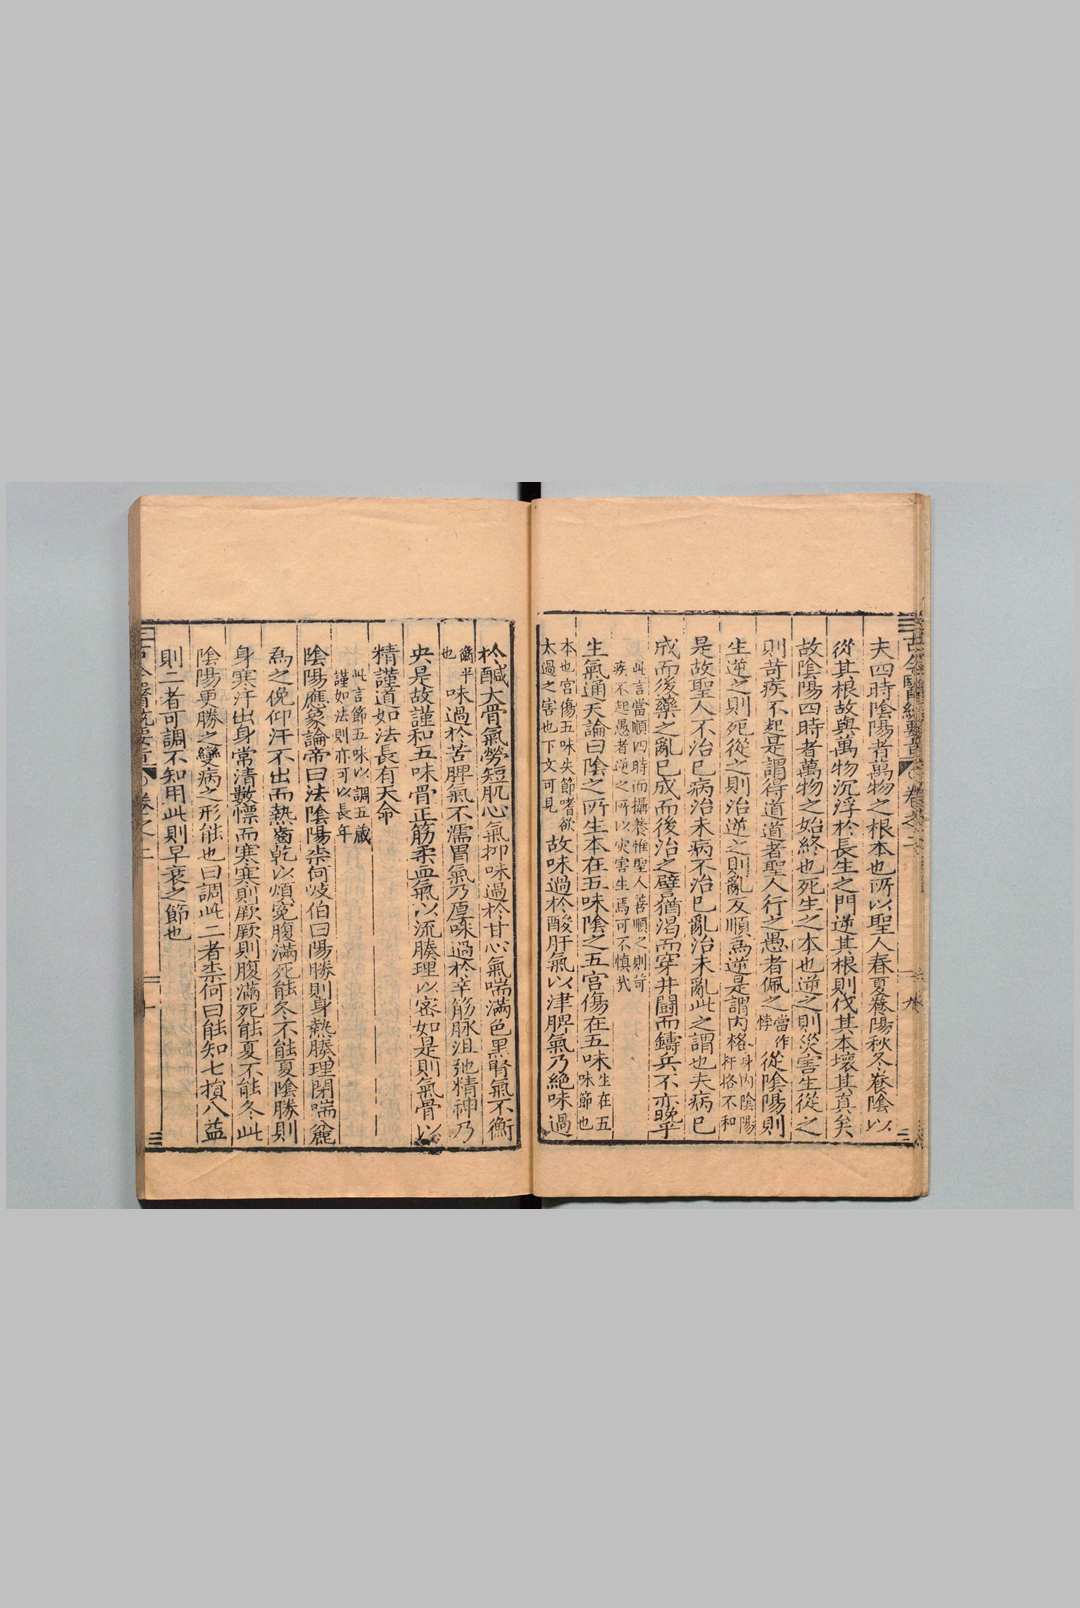 夫四時陰陽者萬物之根本也所以聖人春夏養陽秋冬養陰以
從其根故與萬物沉浮於長生之門逆其根則伐其本壞其真矣
故陰陽四時者萬物之始終也死生之本也逆之則災害生從之
則苛疾不起是謂得道道者聖人行之愚者佩之當作悖從陰陽則
生逆之則死從之則治逆之則亂反順為逆是謂內格身內陰陽扞格不和
是故聖人不治已病治未病不治已亂治未亂此之謂也夫病已
成而後藥之亂已成而後治之譬猶渴而穿井鬪而鑄兵不亦晚乎
此言當順四時而攝養惟聖人善順之則苛
疾不起愚者逆之所以灾害生焉可不慎哉
生氣通天論曰陰之所生本在五味陰之五宮傷在五味生在五味節也
本也宮傷五味失節嗜欲太過之害也下文可見故味過於酸肝氣以津脾氣乃絕味過
於鹹大骨氣勞短肌心氣抑味過於甘心氣喘滿色黑腎氣不衡
衡平也味過於苦脾氣不濡胃氣乃厚味過於辛筋脉沮弛精神乃
央是故謹和五味骨正筋柔血氣以流腠理以密如是則氣骨以
精謹道如法長有天命
此言節五味以調五臟
謹如法則亦可以長年
陰陽應象論帝曰法陰陽柰何岐伯曰陽勝則身熱腠理閉喘麄
為之俛仰汗不出而熱齒乾以煩冤腹滿死能冬不能夏陰勝則
身寒汗出身常清數慄而寒寒則厥厥則腹滿死能夏不能冬此
陰陽更勝之變病之形能也曰調此二者柰何曰能知七損八益
則二者可調不知用此則早衰之節也